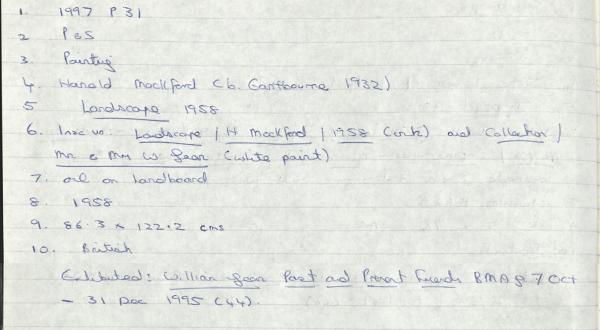 1. 1997 P 31
2 P & S
3. Painting
4. Harold Mockford (b. Eastbourne 1932)
5 Landscape 1958
6. Insc vo. Landscape / H Mockford / 1958 (ink) and Collection /
Mr & Mrs W Gear (white paint)
7. oil on hardboard
8. 1958
9. 86.3 x 122.2 cms
10. British
Exhibited: William Gear Past and Present Friends BMAG 7 Oct
- 31 Dec 1995 (44).